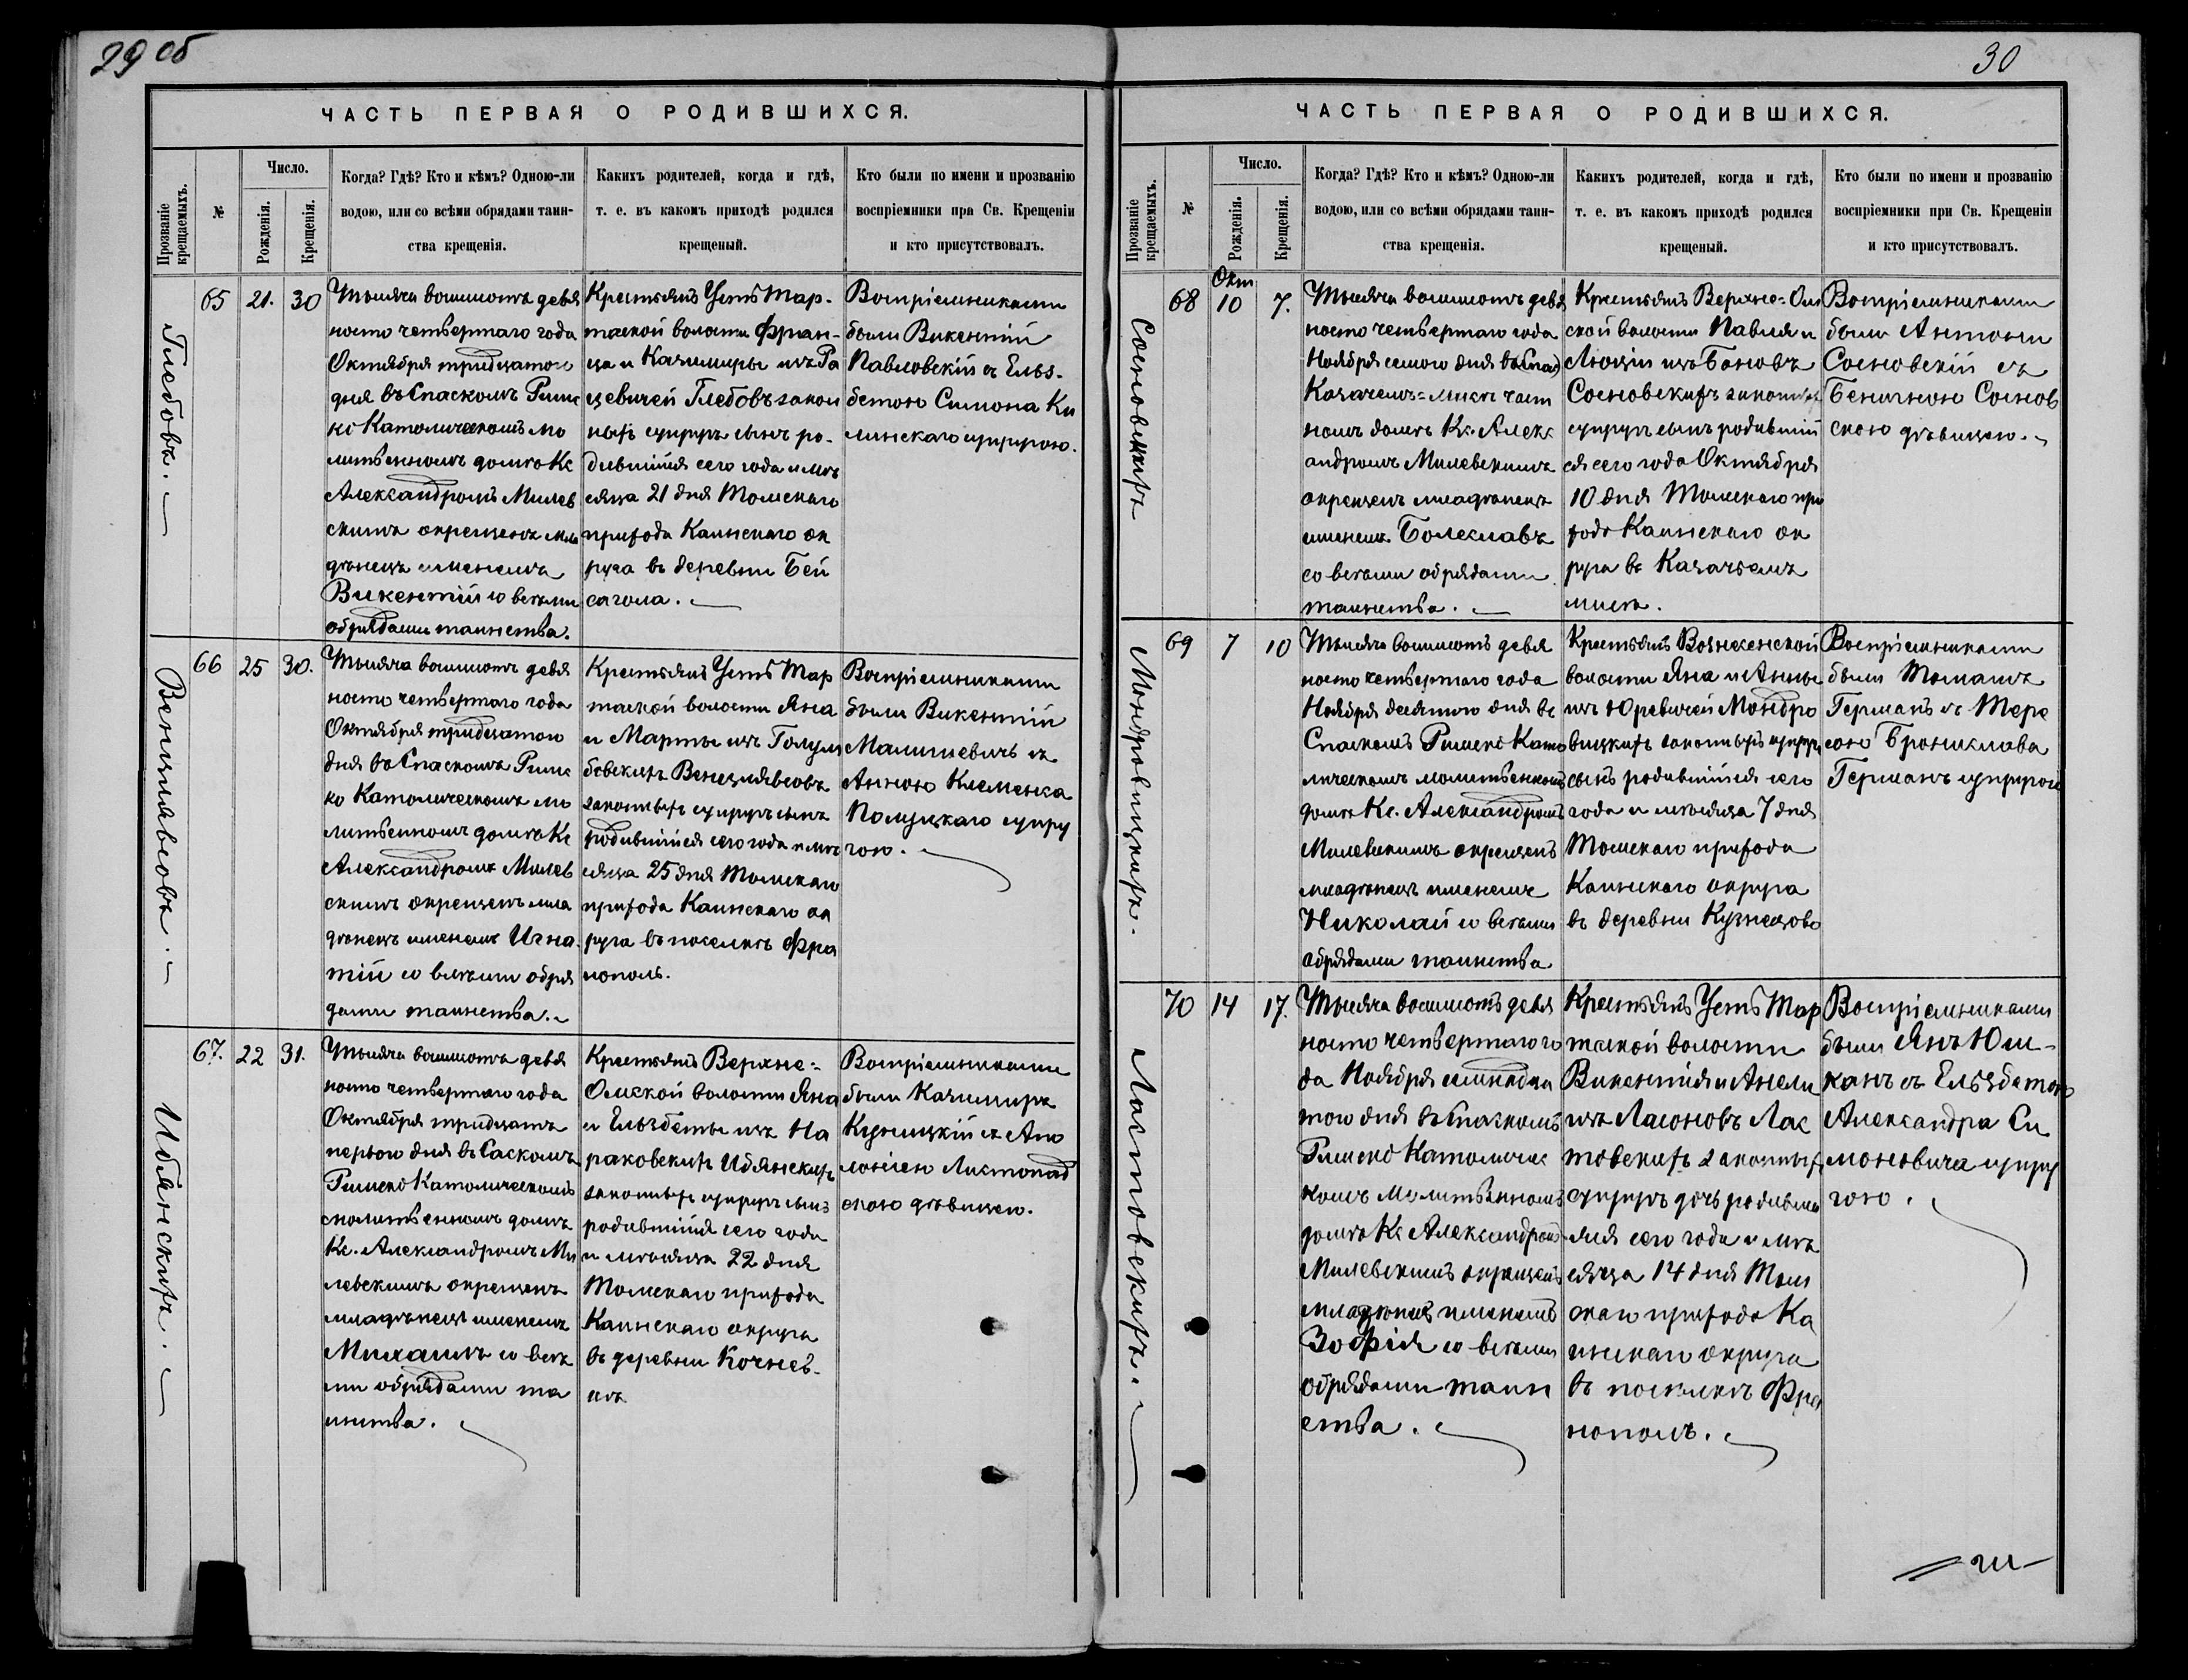 29 об
ЧАСТЬ ПЕРВАЯ О РОДИВШИХСЯ.
Прозваніе крещаемыхъ.
№
Число.
Рожденія.
Крещенія.
Когда? Гдѣ? Кто и кѣмъ? Одною-ли
водою, или со всѣми обрядами таин-
ства крещенія.
Какихъ родителей, когда и гдѣ,
т. е. въ какомъ приходѣ родился
крещеный.
Кто были по имени и прозванію
воспріемники при Св. Крещеніи
и кто присутствовалъ.
Глебовъ.
65
21.
30
Тысяча восмисотъ девя
носто четвертаго года
Октября тридцатого
дня въ Спаскомъ Римс
ко Католическомъ мо
литвенномъ домѣ Кс
Александромъ Милев
скимъ окрещенъ мла
дѣнецъ именемъ
Викентій со всѣми
обрядами таинства.
Крестьянъ Усть Тар-
таской волости Фран-
ца и Казимиры изъ Ра
цевичей Глебовъ закон
ныхъ супруг сынъ ро-
дившійся сего года и мѣ
сяца 21 дня Томскаго
прихода Каинскаго ок
руга въ деревни Бей
сагола.
Воспріемниками
были Викентій
Павловскій съ Ельз-
бетою Симона Ки
линскаго супругою.
Венцлявсовъ.
66
25
30.
Тысяча восмисотъ девя
носто четвертаго года
Октября тридцатого
дня въ Спаскомъ Римс
ко Католическомъ мо
литвенномъ домѣ Кс
Александромъ Милев
скимъ окрещенъ мла
дѣнецъ именемъ Игна
тій со всѣми обря
дами таинства.
Крестьянъ Усть Тар
таской волости Яна
и Марты изъ Голум
бовскихъ Венцлявсовъ
законныхъ супруг сынъ
родившійся сего года и мѣ
сяца 25 дня Томскаго
прихода Каинскаго ок
руга въ поселкѣ Фра
нополь.
Воспріемниками
были Викентій
Малишевичъ съ
Анною Клеменса
Полуцкаго супру
гою.
Ибянскихъ.
67.
22
31.
Тысяча восмисотъ девя
носто четвертаго года
Октября тридцать
первого дня въ Саскомъ
Римско Католическомъ
молитвенномъ домѣ
Кс. Александромъ Ми
левскимъ окрещенъ
младѣнецъ именемъ
Михаилъ со всѣ
ми обрядами та
инства.
Крестьянъ Верхне-
Омской волости Яна
и Ельзбеты изъ На
раковскихъ Ибянскихъ
законныхъ супруг сынъ
родившійся сего года
и мѣсяца 22 дня
Томскаго прихода
Каинскаго округа
въ деревни Кочнев-
кѣ
Воспріемниками
были Казимиръ
Куницкій съ Апо
лоніею Листопад
скою дѣвицею.
30
ЧАСТЬ ПЕРВАЯ О РОДИВШИХСЯ.
Прозваніе крещаемыхъ.
№
Число.
Рожденія.
Крещенія.
Когда? Гдѣ? Кто и кѣмъ? Одною-ли
водою, или со всѣми обрядами таин-
ства крещенія.
Какихъ родителей, когда и гдѣ,
т. е. въ какомъ приходѣ родился
крещеный.
Кто были по имени и прозванію
воспріемники при Св. Крещеніи
и кто присутствовалъ.
Сосновскихъ
68
Окт
10
7.
Тысяча восмисотъ девя
носто четвертаго года
Ноября семого дня въ
Казачемъ-мысѣ част
номъ домѣ Кс. Алекс
андромъ Милевскимъ
окрещенъ младѣнецъ
именемъ Болеславъ
со всѣми обрядами
таинства.
Крестьянъ Верхне-Ом
ской волости Павла и
Люціи изъ Бановъ
Сосновскихъ законных
супруг сынъ родившій
ся сего года Октября
10 дня Томскаго при
хода Каинскаго ок
руга въ Казачьемъ
мысѣ.
Воспріемниками
были Антони
Сосновскій съ
Бенигною Соснов
скою дѣвицею.
Мондровицкихъ.
69
7
10
Тысяча восмисотъ девя
носто четвертаго года
Ноября десятого дня въ
Спаскомъ Римско Като
лическомъ молитвенномъ
домѣ Кс. Александромъ
Милевскимъ окрещенъ
младѣнецъ именемъ
Николай со всѣми
обрядами таинства
Крестьянъ Вознесенской
волости Яна и Анны
изъ Юревичей Мондро
вицкихъ законныхъ супруг
сынъ родившійся сего
года и мѣсяца 7 дня
Томскаго прихода
Каинскаго округа
въ деревни Кузнецово
Воспріемниками
были Томашъ
Германъ съ Тере
сою Бронислава
Германъ супругою
Лостовскихъ.
70
14
17.
Тысяча восмисотъ девя
носто четвертаго го
да Ноября семнадца
того дня въ Спаскомъ
Римско Католичес
комъ Молитвенномъ
домѣ Кс Александромъ
Милевскимъ окрещенъ
младѣнецъ именемъ
Зофія со всѣми
обрядами таин
ства.
Крестьянъ Усть Тар
таской волости
Викентія и Анели
изъ Ласоновъ Лас
товскихъ законных
супругъ дочь родивша
яся сего года и мѣ
сяца 14 дня Том
скаго прихода Ка
инскаго округа
въ поселкѣ Фра
нополъ.
Воспріемниками
были Янъ Юш-
канъ съ Ельзбетою
Александра Си
моновича супру
гою.